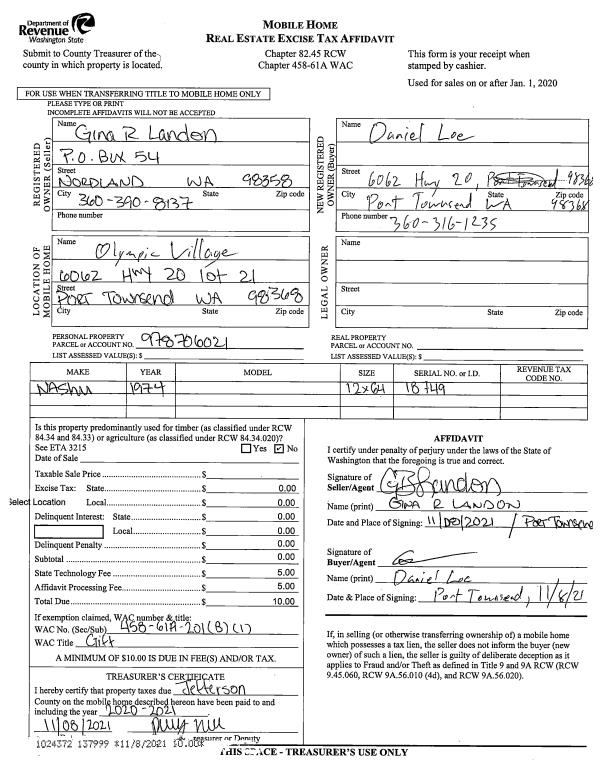 Department of
Revenue
Washington State
MOBILE HOME
REAL ESTATE EXCISE TAX AFFIDAVIT
Submit to County Treasurer of the
county in which property is located.
Chapter 82.45 RCW
Chapter 458-61A WAC
This form is your receipt when
stamped by cashier.
Used for sales on or after Jan. 1, 2020
FOR USE WHEN TRANSFERRING TITLE TO MOBILE HOME ONLY
PLEASE TYPE OR PRINT
INCOMPLETE AFFIDAVITS WILL NOT BE ACCEPTED
REGISTERED
OWNER (Seller)
Name
Gina R Landon
P.O. Box 54
Street
NORDLAND WA 98358
City State Zip code
360-390-8137
Phone number
NEW REGISTERED
OWNER (Buyer)
Name
Daniel Loe
Street
6062 Hwy 20, 98368
City State Zip code
Port Townsend WA 98368
Phone number
360-316-1235
LOCATION OF
MOBILE HOME
Name
Olympic Village
6062 Hwy 20 lot 21
Street
PORT Townsend WA 98368
City State Zip code
LEGAL OWNER
Name
Street
City State Zip code
PERSONAL PROPERTY
PARCEL or ACCOUNT NO. 978706021
LIST ASSESSED VALUE(S): $
REAL PROPERTY
PARCEL or ACCOUNT NO.
LIST ASSESSED VALUE(S): $
MAKE YEAR MODEL SIZE SERIAL NO. or I.D. REVENUE TAX
CODE NO.
1974 12x64 18749
Is this property predominantly used for timber (as classified under RCW
84.34 and 84.33) or agriculture (as classified under RCW 84.34.020)?
See ETA 3215 Yes No
Date of Sale
Taxable Sale Price $
Excise Tax: State $ 0.00
Select Location Local $ 0.00
Delinquent Interest: State $ 0.00
Local $ 0.00
Delinquent Penalty $ 0.00
Subtotal $ 0.00
State Technology Fee $ 5.00
Affidavit Processing Fee $ 5.00
Total Due $ 10.00
If exemption claimed, WAC number & title:
WAC No. (Sec/Sub) 458-61A-201(B)(1)
WAC Title Gift
A MINIMUM OF $10.00 IS DUE IN FEE(S) AND/OR TAX.
TREASURER'S CERTIFICATE
I hereby certify that property taxes due Jefferson
County on the mobile home described hereon have been paid to and
including the year 2020-2021
11/08/2021
Treasurer or Deputy
1024372 137999 *11/8/2021 10.00*
AFFIDAVIT
I certify under penalty of perjury under the laws of the State of
Washington that the foregoing is true and correct.
Signature of
Seller/Agent
Name (print) GINA R LANDON
Date and Place of Signing: 11/08/2021 / Port Townsend
Signature of
Buyer/Agent
Name (print) Daniel Loe
Date & Place of Signing: Port Townsend, 11/8/21
If, in selling (or otherwise transferring ownership of) a mobile home
which possesses a tax lien, the seller does not inform the buyer (new
owner) of such a lien, the seller is guilty of deliberate deception as it
applies to Fraud and/or Theft as defined in Title 9 and 9A RCW (RCW
9.45.060, RCW 9A.56.010 (4d), and RCW 9A.56.020).
THIS SPACE - TREASURER'S USE ONLY